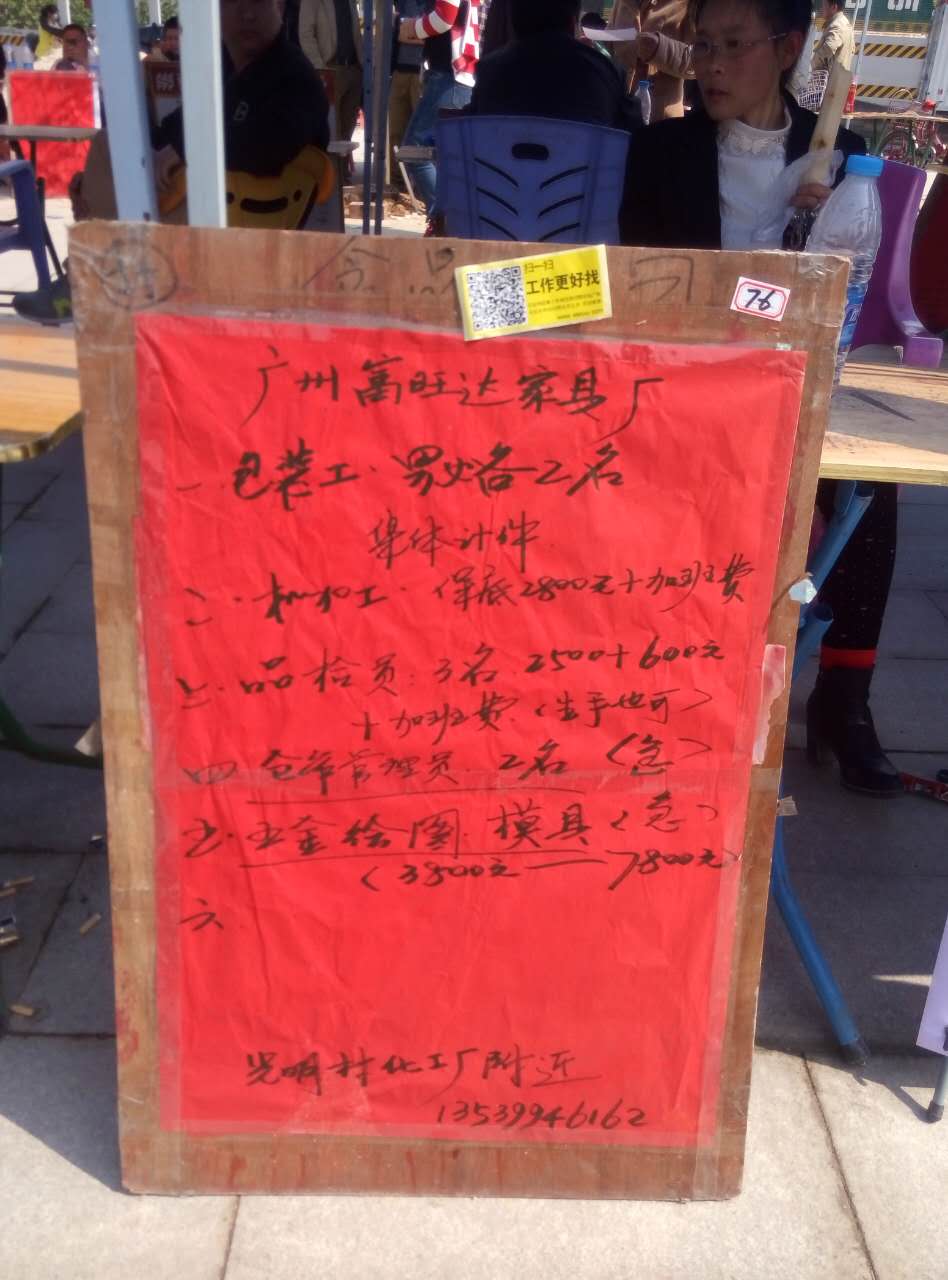 扫一扫
工作更好找
76
广州富旺达家具厂
一 包装工. 男女各2名
集体计件
二. 机加工. 保底2800元+加班费
三. 品检员. 3名. 2500+600元
+加班费.(生手也可)
四 仓库管理员. 2名 (急)
五. 五金绘图. 模具(急)
(3800元—7800元)
六
光明村化工厂附近
13539946162